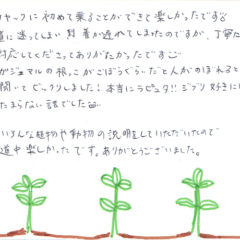 ヤックに初めて乗ることができて楽しかったです
道に迷ってしまい到着が遅れてしまったのですが、丁寧に
対応してくださってありがたかったです
ガジュマルの根っこがごぼうぐらいだと人がのぼれると
聞いてビックリしました!本当にラピュタ!!ジブリ好きには
たまらない話でした
いろんな植物や動物の説明をしていただいたので
道中楽しかったです。ありがとうございました。